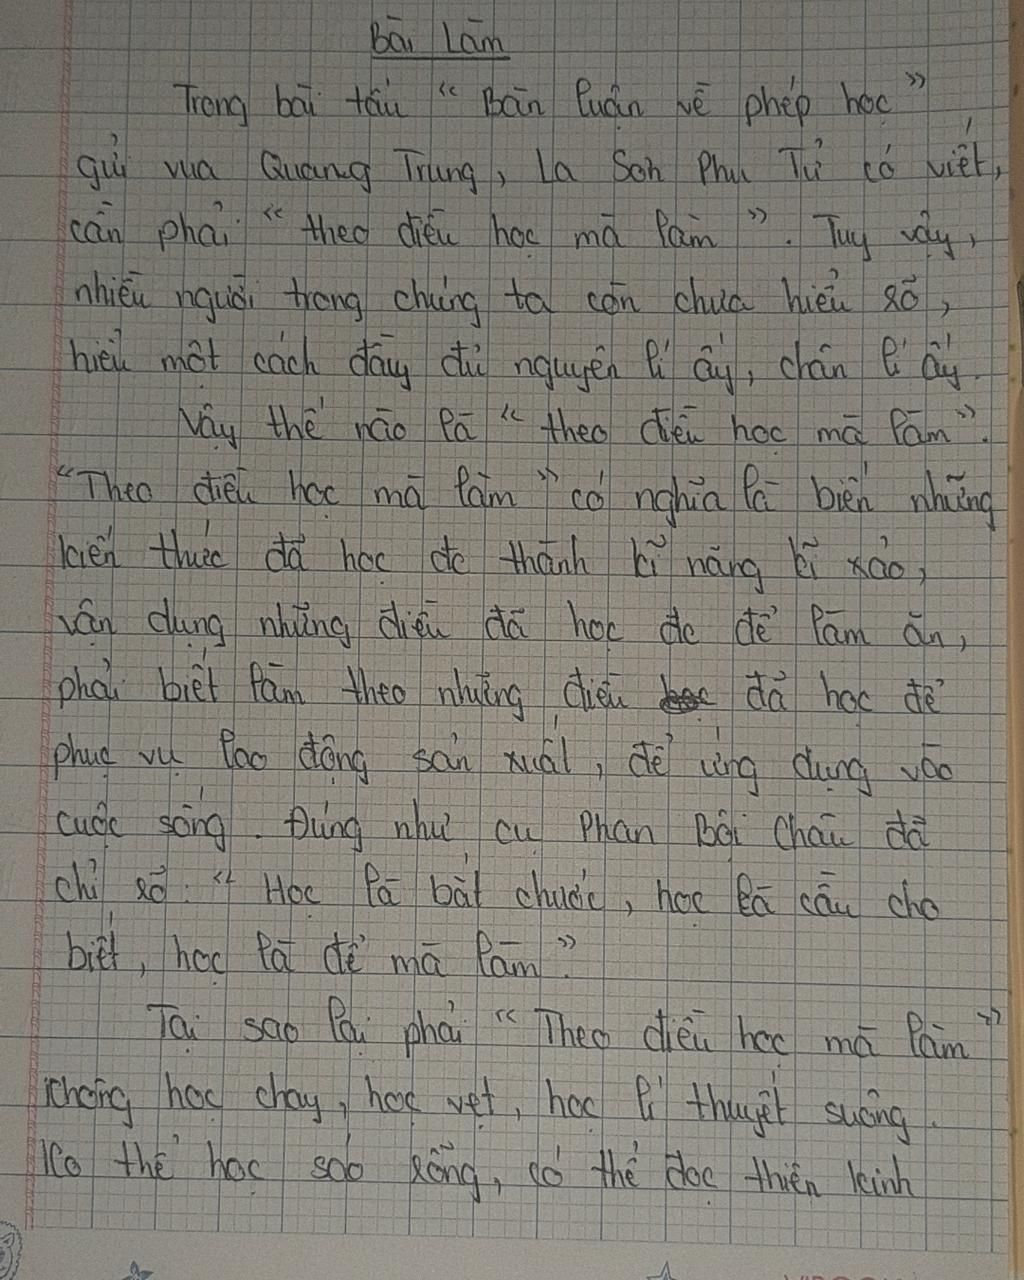 Bài Làm
Trong bài tấu “ Bàn luận về phép học ”
gửi vua Quang Trung, La Sơn Phu Tử có viết,
cần phải “ theo điều học mà làm ”. Tuy vậy,
nhiều người trong chúng ta còn chưa hiểu rõ,
hiểu một cách đầy đủ nguyên lí ấy, chân lí ấy.
Vậy thế nào là “ theo điều học mà làm ”.
“Theo điều học mà làm ” có nghĩa là biến những
kiến thức đã học đc thành kĩ năng kĩ xảo,
vận dụng những điều đã học đc để làm ăn,
phải biết làm theo những điều đã học để
phục vụ lao động sản xuất, để ứng dụng vào
cuộc sống. Đúng như cụ Phan Bội Châu đã
chỉ rõ: “ Học là bắt chước, học là cầu cho
biết, học là để mà làm ”.
Tại sao lại phải “ Theo điều học mà làm ”
Không học chay, học vẹt, học lí thuyết suông.
Ko thể học sáo rỗng, có thể đọc thiên kinh